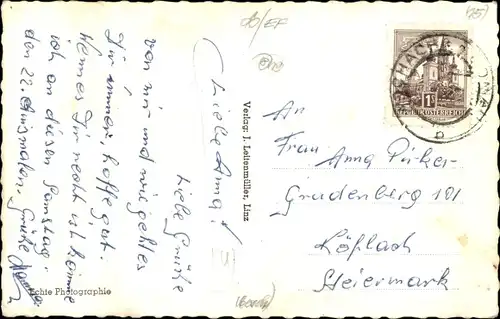 Liebe Anna!
Liebe Grüße
von mir und wie geht es
Dir immer, hoffe gut.
Wenn es Dir recht ist komme
ich an diesen Samstag.
den 22. Ausmalen. Grüße
Echte Photographie
Verlag: J. Leitenmüller, Linz
REPUBLIK ÖSTERREICH
An
Frau Anna Pirker
Gradenberg 101
Köflach
Steiermark